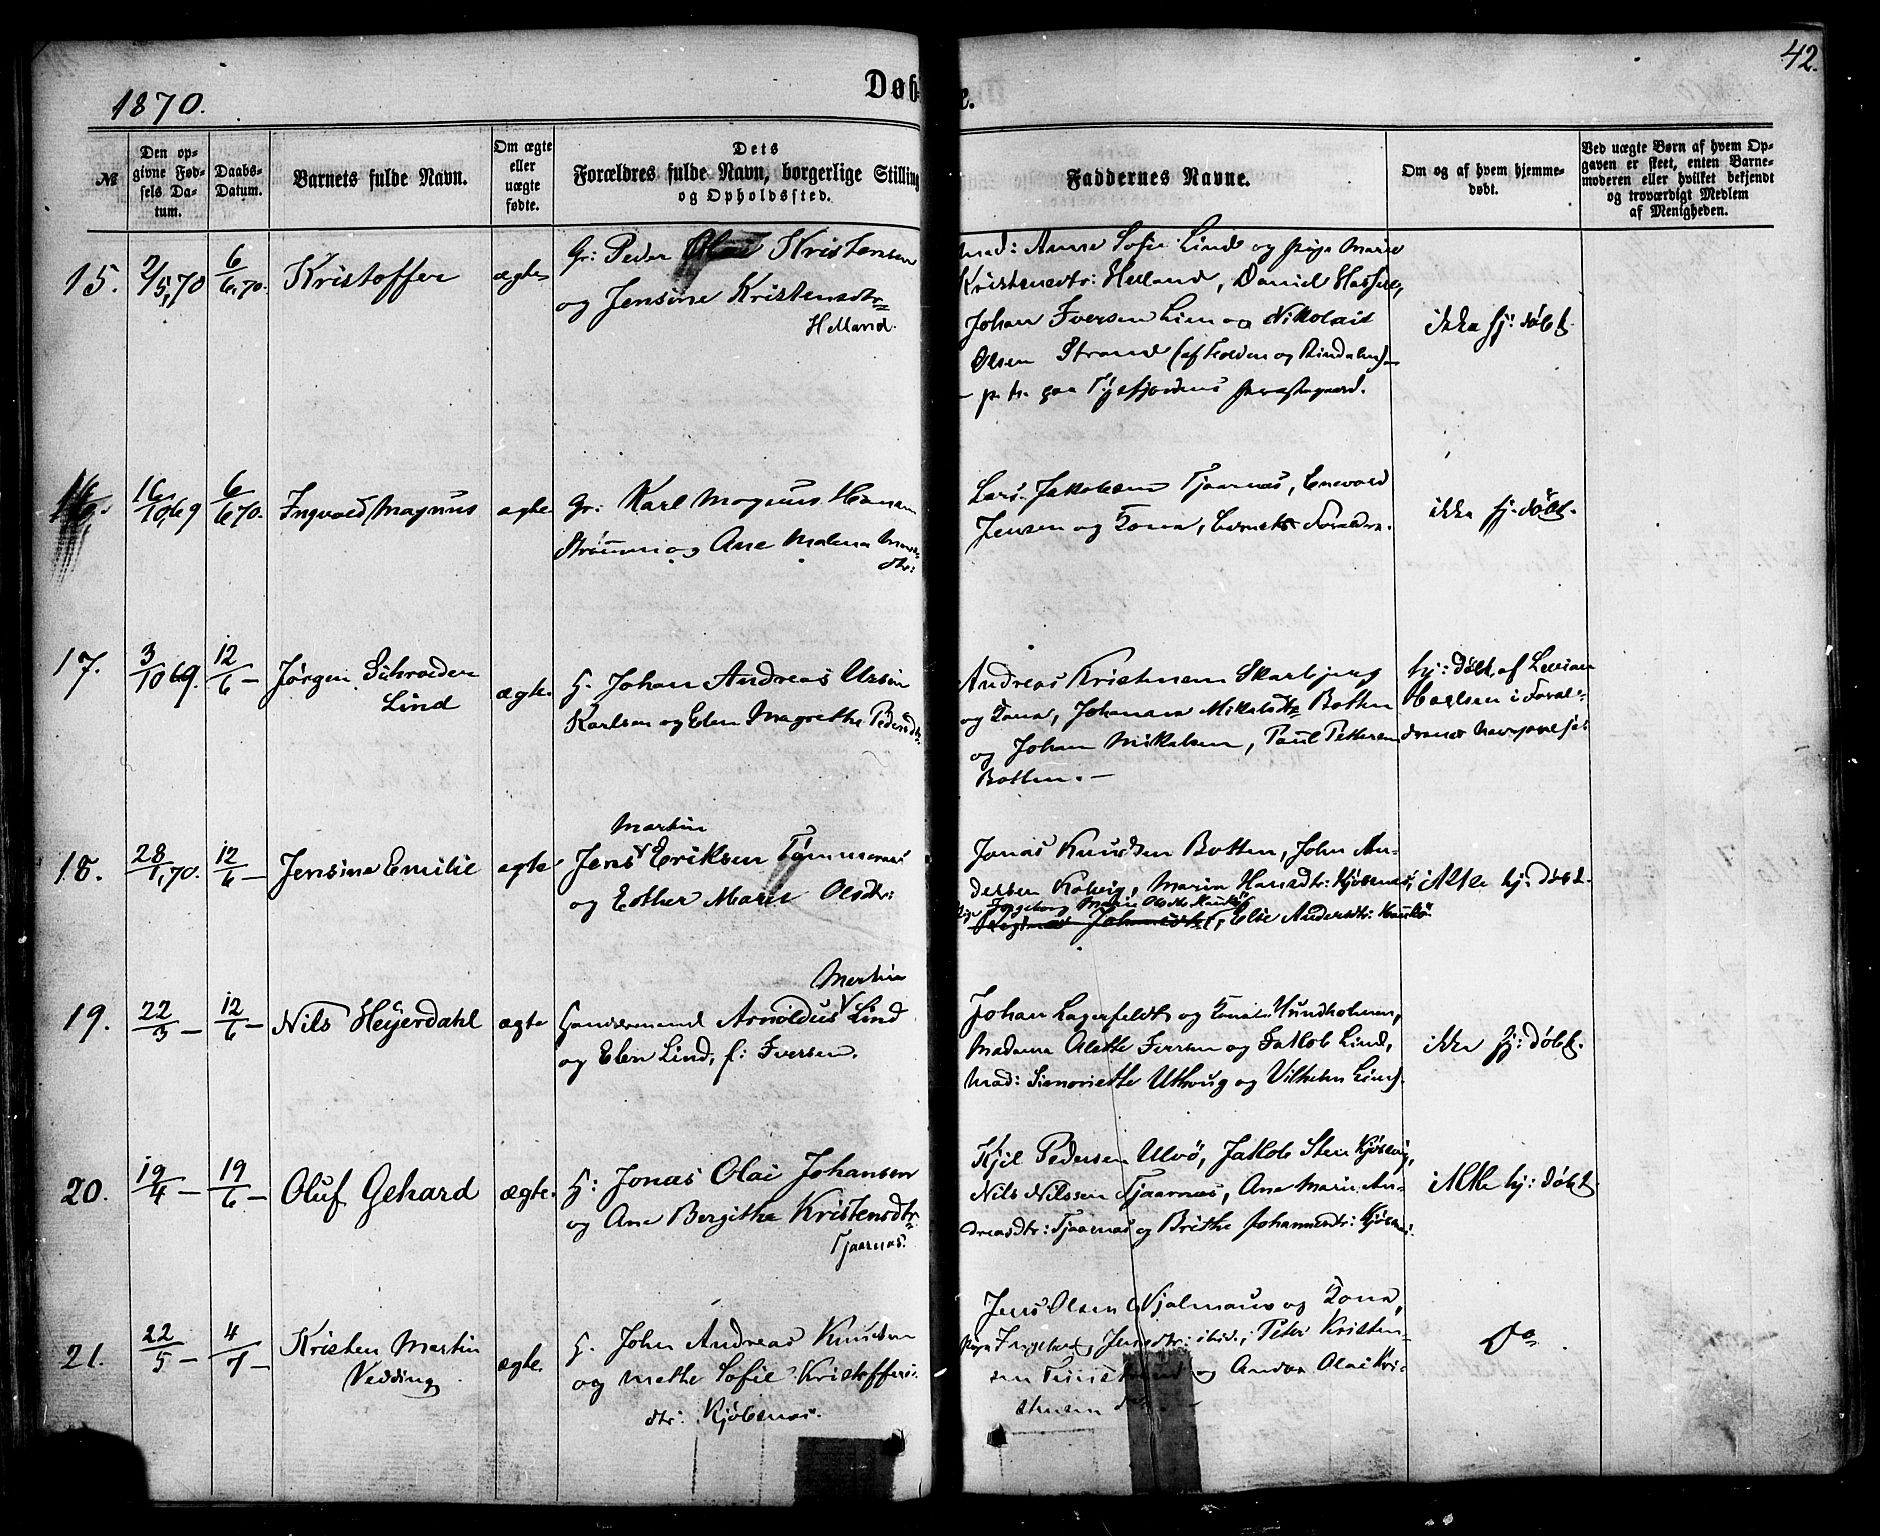 42.
1870.
Døb
e.
№
Den op-
givne Fød-
sels Da-
tum.
Daabs-
Datum.
Barnets fulde Navn.
Om ægte
eller
uægte
fødte.
Dets
Forældres fulde Navn, borgerlige Stilling
og Opholdssted.
Faddernes Navne.
Om og af hvem hjemme-
døbt.
Ved uægte Børn af hvem Op-
gaven er skeet, enten Barne-
moderen eller hvilket bekjendt
og troværdigt Medlem
af Menigheden.
15. 2/5,70 6/6,70. Kristoffer ægte
Gr: Peder Olai Kristensen
og Jensine Kristensdtr
Helland.
Mad: Anna Sofie Lind og pige Marie
Kristensdtr: Helland, Daniel
Johan Iversen Lien og Nikolai
Olsen Strand
p. t. paa Præstegaard.
ikke hj: døbt.
16. 16/10,69 6/6,70. Ingvald Magnus ægte
Gr: Karl Magnus Hansen
og Ane Malena
dtr:
Lars Jakobsen Tjaarnæs, Enevold
Jensen og Kona, Barnets Forældre.
ikke hj: døbt.
17. 3/10 69. 12/6 – Jørgen Schrøder
Lind
ægte
G: Johan Andreas Ursin
Karlsen og Elen Magrethe Pedersdtr:
Andreas Kristensen Skarbjerg
og Kona, Johanna Mikelsdtr Botten
og Johan Mikalsen, Paul Pettersen
Botten. –
hj: døbt af
i Foræl-
18. 28/1,70. 12/6 – Jensine Emilie ægte
Martin
Jens Eriksen Tømmernæs
og Esther Marie Olsdtr:
Jonas Knudsen Botten, John An-
dersen Maria Hansdtr:
Ingeborg Marie Olsdtr
Elie Andersdtr:
ikke hj: døbt.
19. 22/3 – 12/6 – Nils Heyerdahl ægte
Martin
Arnoldus Lind
og Elen Lind, f: Iversen.
Johan Lagerfeldt og Kona Hundholmen,
Madame Olette Iversen og Jakob Lind,
Mad: Uthoug og Vilhelm Lind.
ikke hj: døbt.
20. 19/4 – 19/6 – Oluf Gehard ægte
G: Jonas Olai Johansen
og Ane Bergithe Kristensdtr
Tjaarnæs.
Kjil Pedersen Ulvö, Jakob Sten
Nils Nilssen Tjaarnæs, Ane Marie An-
dreasdtr: Tjaarnæs og Brithe Johannesdtr:
ikke hj: døbt.
21. 22/5 – 4/7 – Kristen Martin
Vedding
ægte.
G. John Andreas Knudsen
og Mette Sofie Kristoffers-
dtr: Kjöbsnæs.
Jens Olsen og Kona,
Pige Ingeborg Jensdtr: ibid; Peter Kristen-
sen og Anders Olai Kri-
stensen
Do